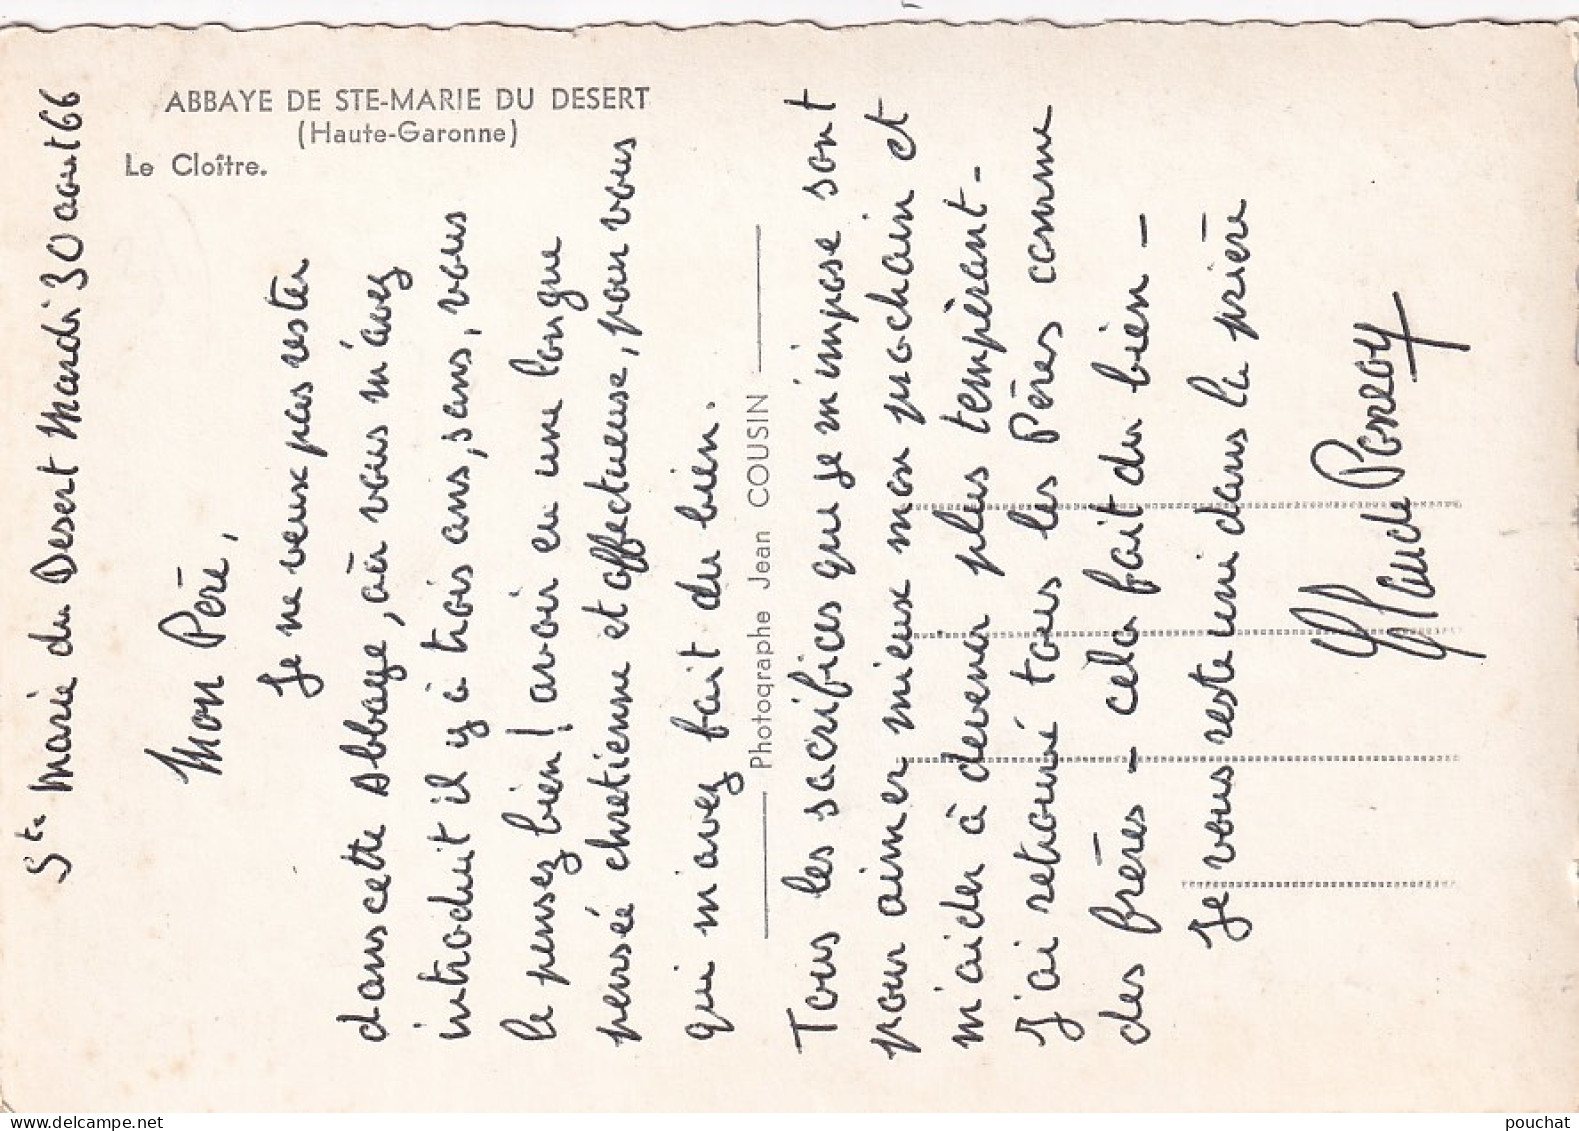 ABBAYE DE STE-MARIE DU DESERT
(Haute-Garonne)
Le Cloître.
Photographe Jean COUSIN
Ste Marie du Desert Mardi 30 aout 66
Mon Père,
Je ne veux pas rester
dans cette Abbaye, où vous m'avez
introduit il y a trois ans, sans, vous
le pensez bien ! avoir eu une longue
pensée chretienne et affectueuse, pour vous
qui m'avez fait du bien.
Tous les sacrifices que je m'impose sont
pour aimer mieux mon prochain et
m'aider à devenir plus tempèrant -
J'ai retrouvé tous les Pères comme
des frères - cela fait du bien -
Je vous reste uni dans la prière
Claude
www.delcampe.net
pouchat